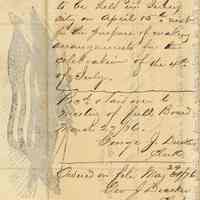 to be held in Jersey
City on April 15th next
for the purpose of making
arrangements for the
celebration of the 4th
of July.
Read & laid over to
Meeting of full Board
March 27/76.
George J.
Clerk
on file May 24/76
Geo J